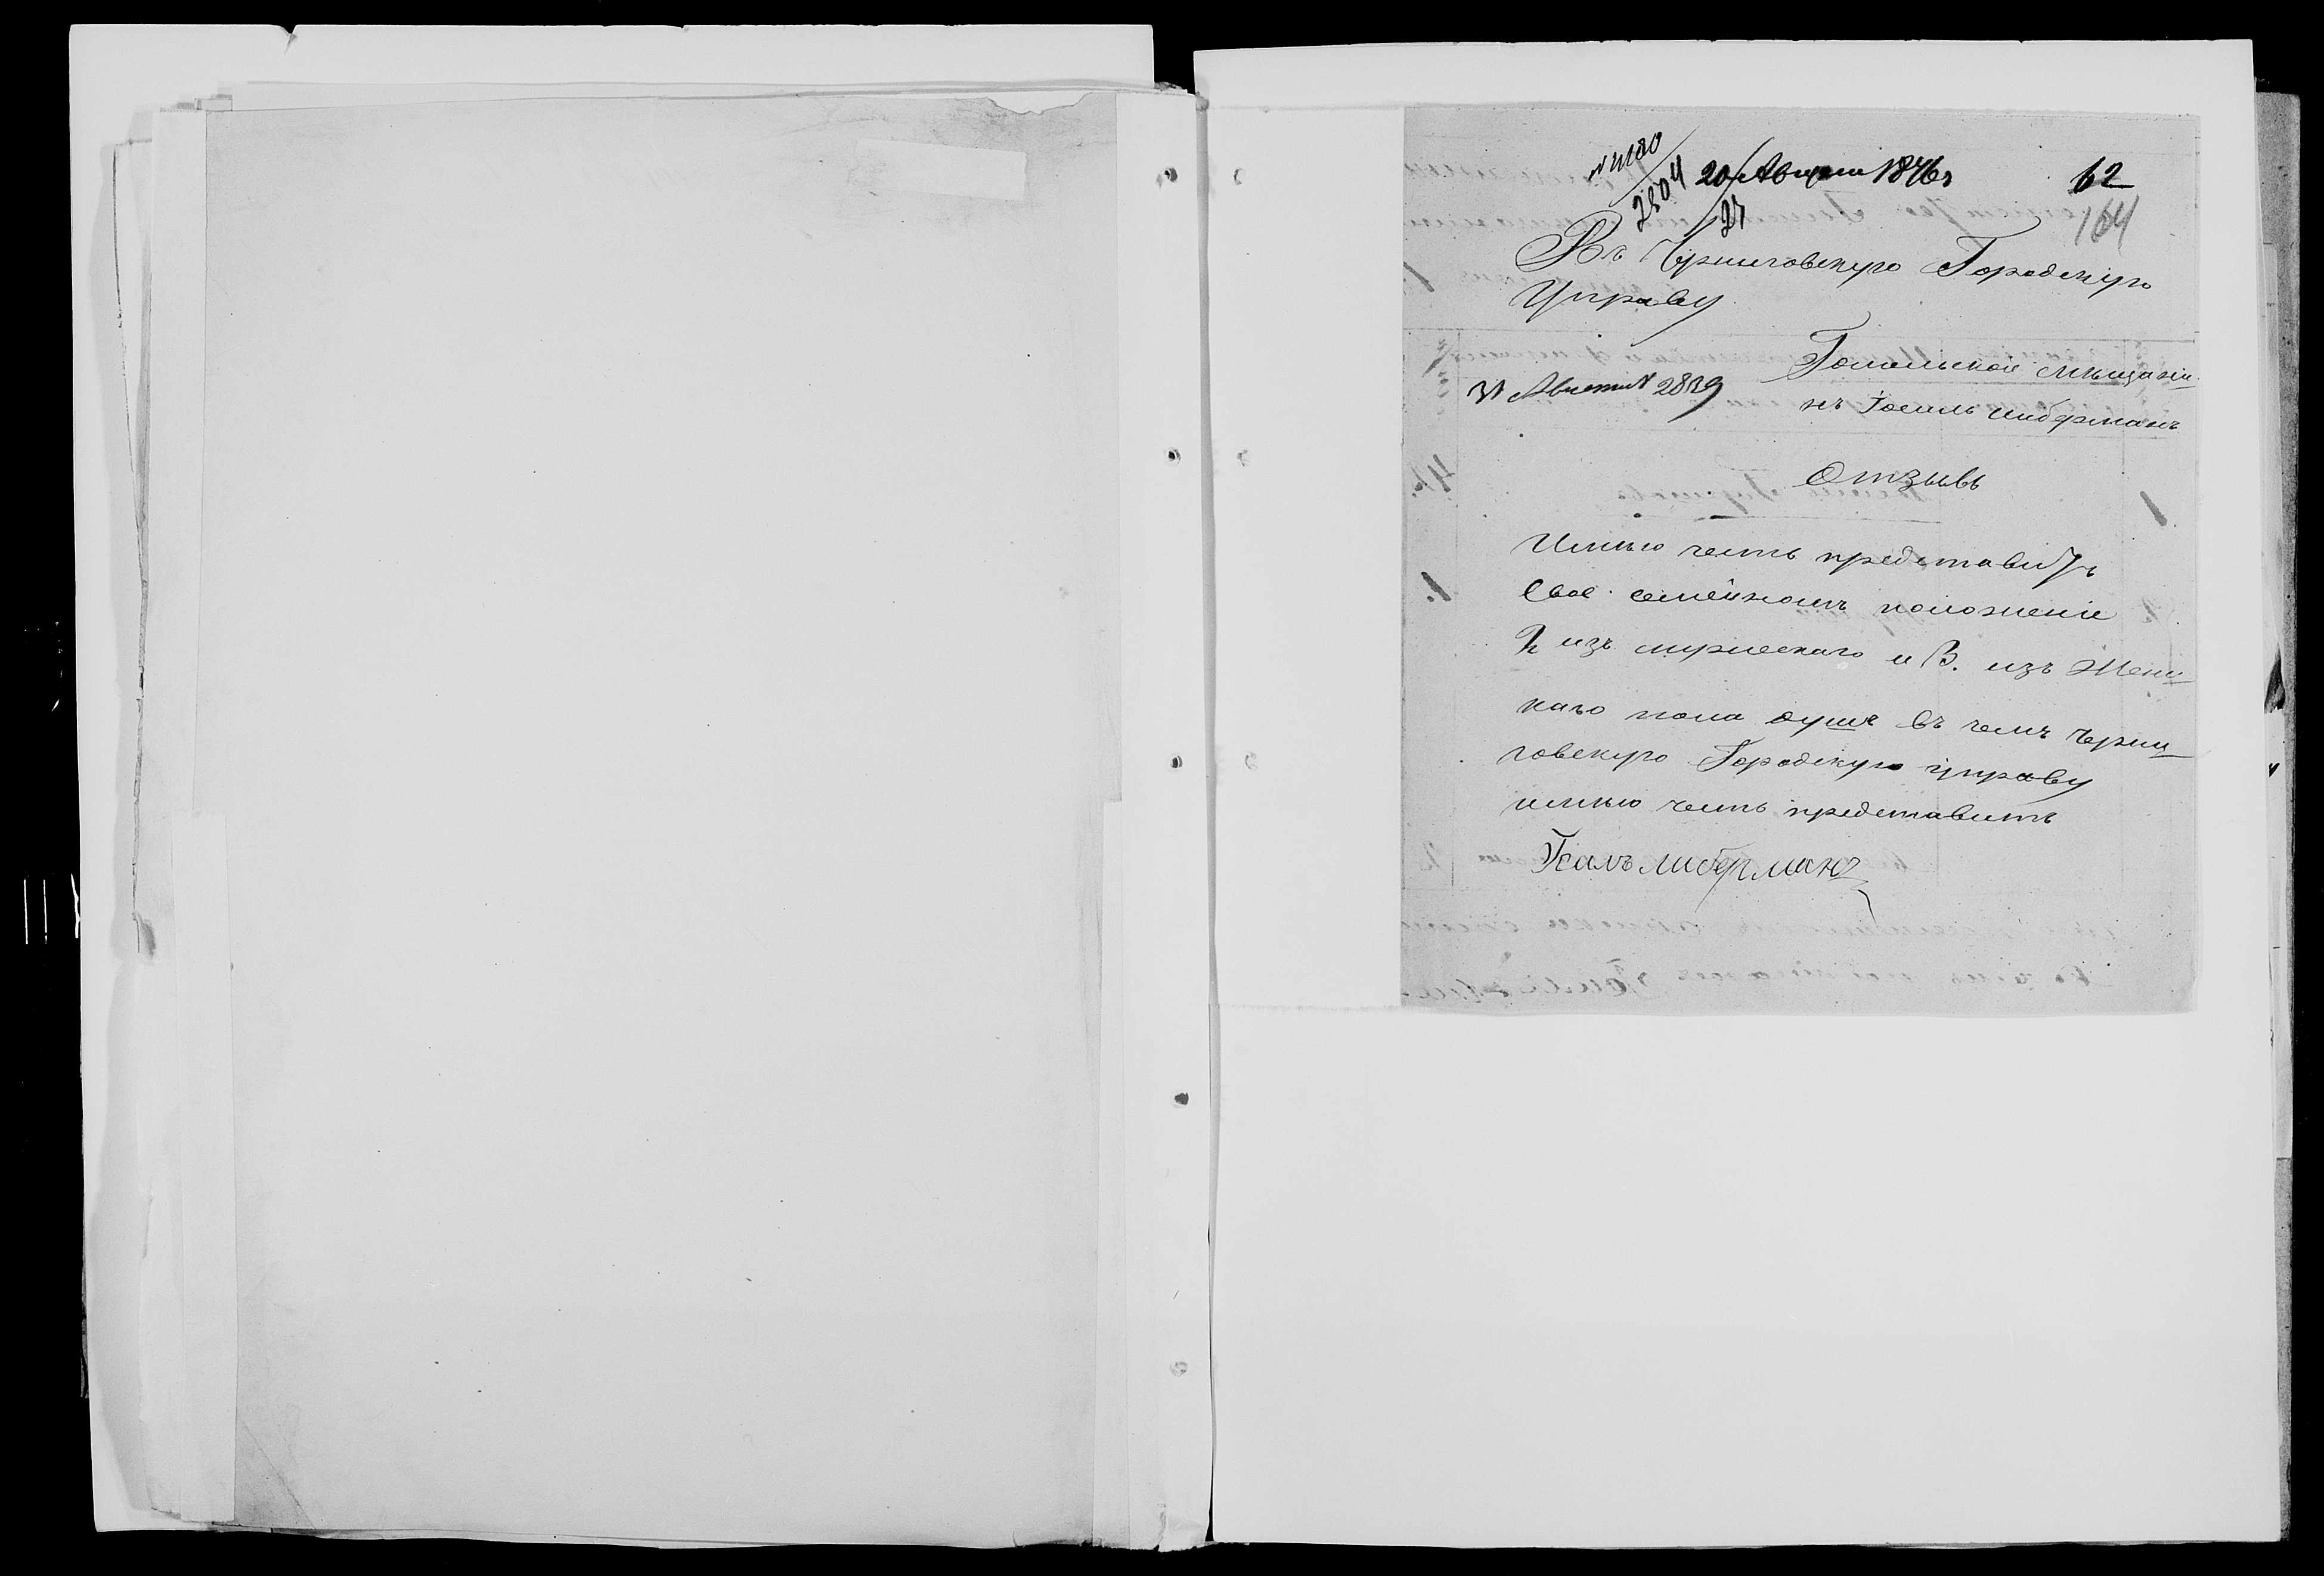 № 4180
2804
20 Августа 1876 г
27
62
164
Въ Черниговскую Городскую
Управу
Гомельской мѣщани-
31 Августа № 2839
нъ Iосиль либерманъ
Отзывъ
Имѣю честь представить
Свое семейномъ положеніе
2 изъ мужескаго и 3. изъ Женс-
каго пола душе въ чемъ Черни-
говскую Городскую управу
имѣю честь представить
либерманъ